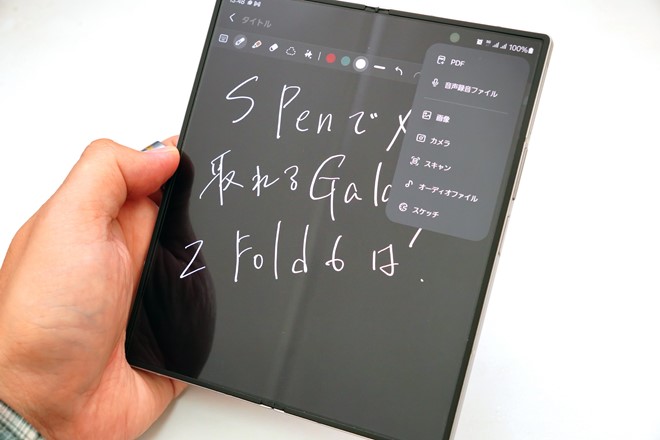 タイトル
100%
PDF
音声録音ファイル
画像
カメラ
スキャン
オーディオファイル
スケッチ
S Penで
取れるGala
Z Fold6は!